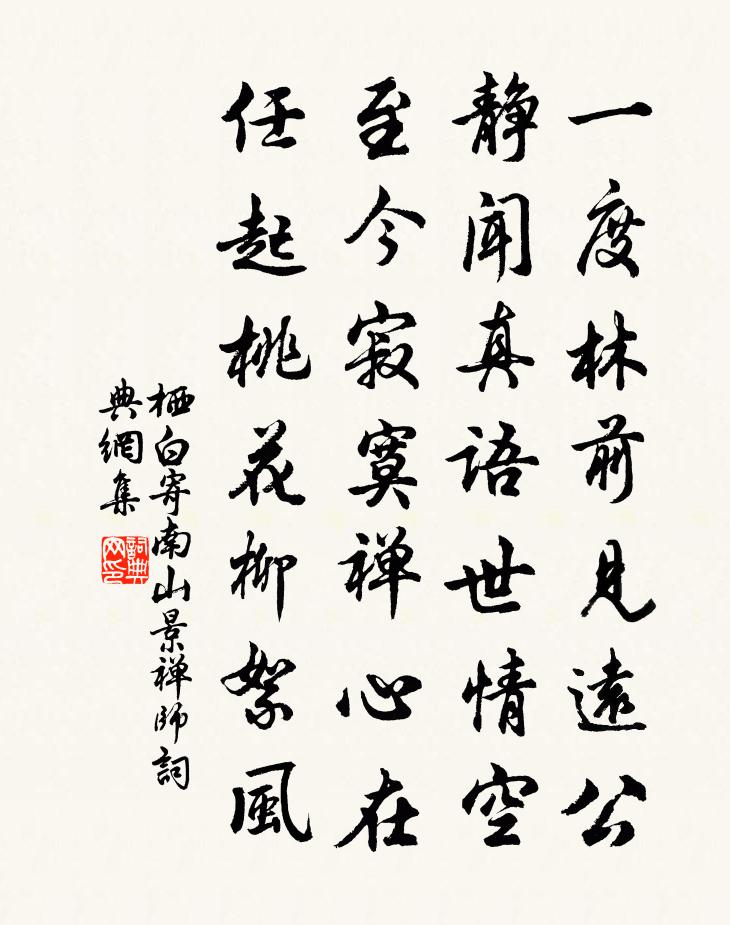 一度林前見遠公
靜聞真語世情空
至今寂寞禅心在
任起桃花柳絮風
栖白寄南山景禅師詞
典網集
詞典
网印